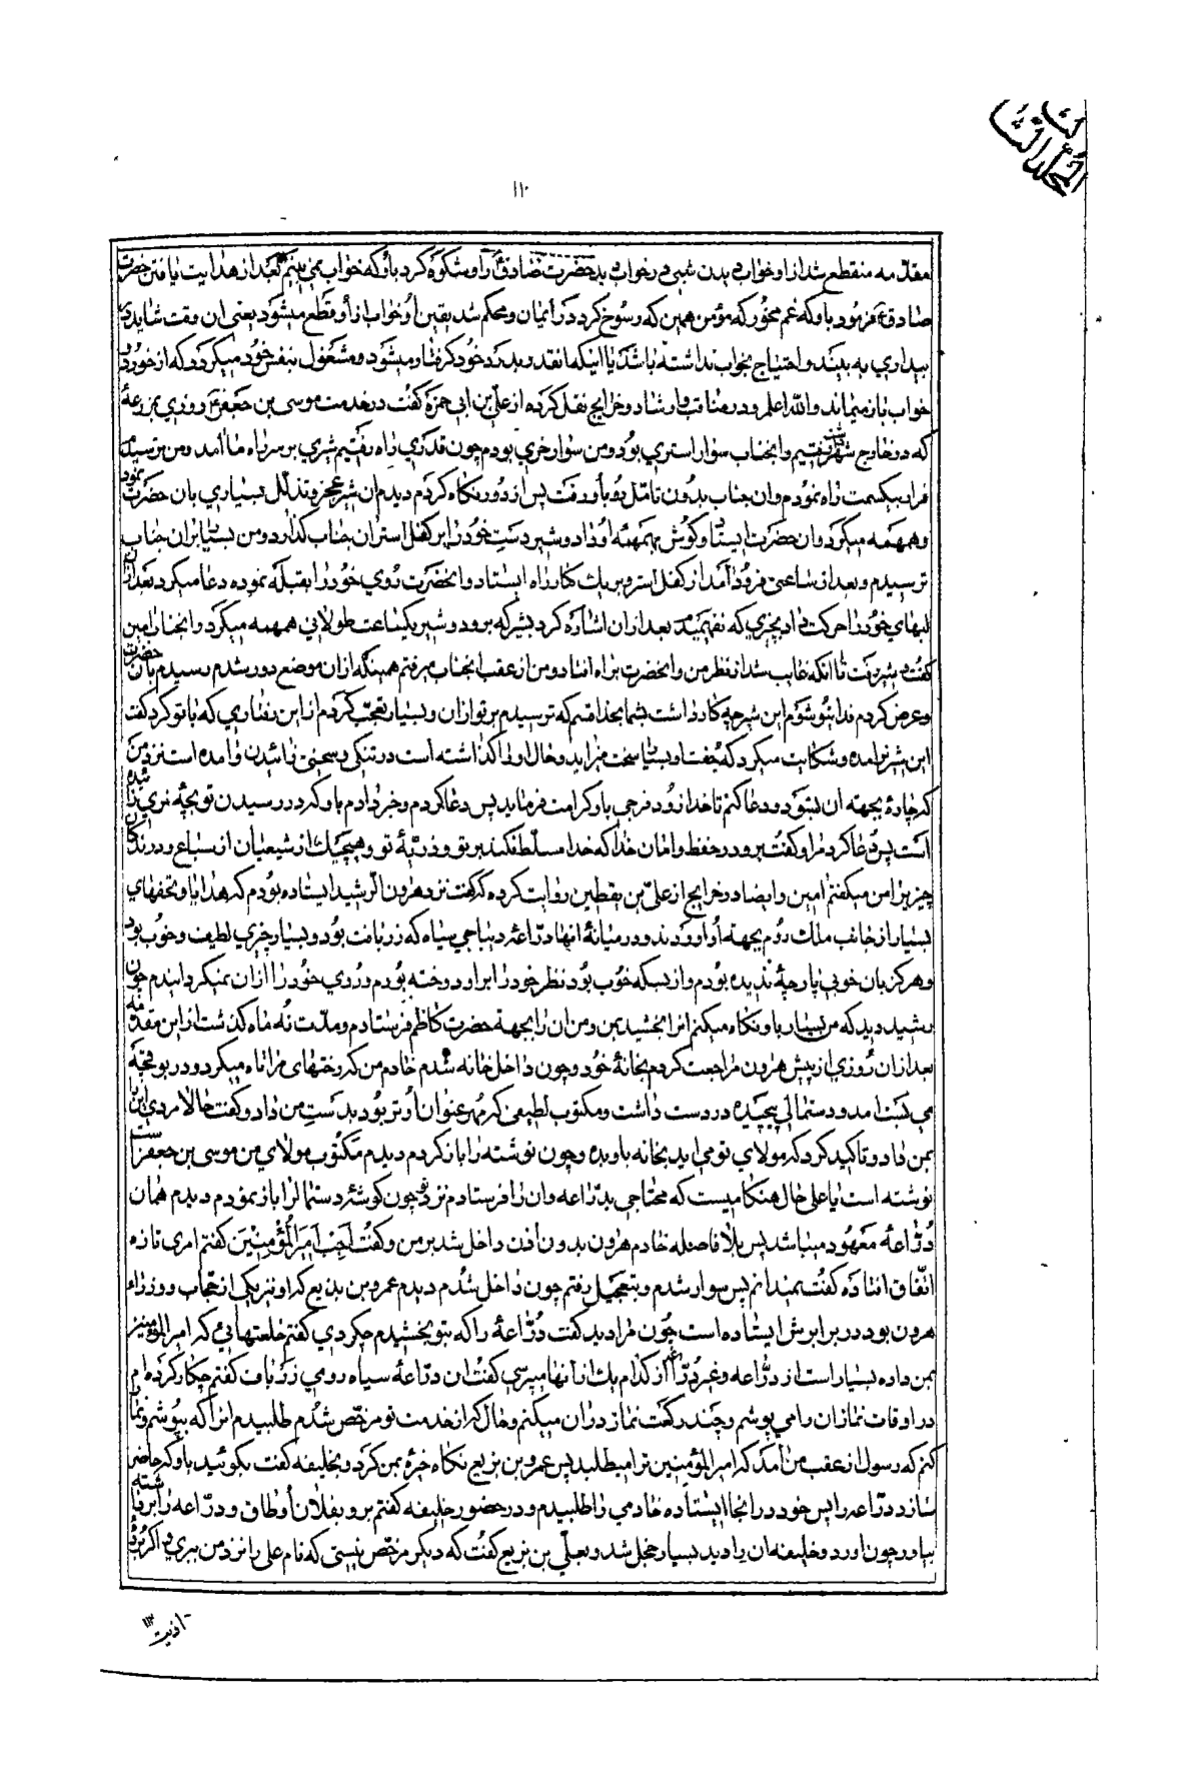 المجلد الثالث
۱۱۲
مقدمه منقطع شد از او خواب دیدن شبی در خواب دید حضرت صادق را و شکوه کرد باو که خواب نمی بینم بعد از هدایت یافتن حضرت
صادق فرمود باو که غم مخور که مؤمن همین که رسوخ کرد در ایمان و محکم شد یقین او خواب از او قطع میشود یعنی ان وقت شاید در
بیداری به بیند و احتیاج بخواب نداشته باشد یا اینکه انقدر بدرد خود گرفتار میشود و مشغول بنفس خود میکردد که از خورد و
خواب باز میماند والله اعلم و در مناقب و ارشاد و خرایج نقل کرده از علی بن ابی حمزه گفت در خدمت موسی بن جعفر روزی بمزرعهٔ
که در خارج شهر داشت رفتیم و انجناب سوار استری بود و من سوار خری بودم چون قدری راه رفتیم شیری بر سر راه ما آمد و من ترسیدم
فرار بیکسمت راه نمودم و ان جناب بدون تامل رو باو رفت پس از دور نگاه کردم دیدم ان شیر عجز و تذلل بسیاری بان حضرت نمود
و همهمه میکرد و ان حضرت ایستاد و گوش بهمهمهٔ او داد و شیر دست خود را بر کفل استر ان جناب گذارد و من بسیار بران جناب
ترسیدم و بعد از ساعتی فرود آمد از کفل استر و بر یک کنار راه ایستاد و انحضرت روی خود را بقبله نموده دعا میکرد بعد از ان
لبهای خود را حرکت داد بچیزی که نفهمیدم بعد از ان اشاره کرد بشیر که برود و شیر یکساعت طولانی همهمه میکرد و انجناب امین
گفت و شیر رفت تا انکه غایب شد از نظر من و انحضرت براه افتاد و من از عقب انجناب میرفتم همینکه از ان موضع دور شدم رسیدم بان حضرت
و عرض کردم فدایتو شوم این شیر چه کار داشت بشما بخدا قسم که ترسیدم بر تو از ان و بسیار تعجب کردم از این رفتاری که با تو کرد گفت
این شیر نر امده و شکایت میکرد که جفت او بسیار سخت میزاید و حال او را گذاشته است در تنگی و سختی زائیدن و آمده است نزد من
که چارهٔ بجهته ان بشود و دعا کنم تا خدا زود فرجی باو کرامت فرماید پس دعا کردم و خبر دادم باو که در رسیدن تو بچهٔ نری زائیده شده
است پس دعا کرد مرا و گفت برو در حفظ و امان خدا که خدا مسلط نکند بر تو و ذریهٔ تو و هیچیک از شیعیان از سباع و درندگان
چیزیرا من میگفتم امین و ایضا در خرایج از علی بن یقطین روایت کرده که گفت نزد هارون الرشید ایستاده بودم که هدایا و تحفهای
بسیار از جانب ملک روم بجهته او اوردند و در میانهٔ انها دراعهٔ دیباجی سیاه که زربافت بود و بسیار چیزی لطیف و خوب بود
و هرگز بان خوبی پارچهٔ ندیده بودم و از بسکه خوب بود نظر خود را بر او دوخته بودم و روی خود را از ان نمیگردانیدم چون
رشید دید که من بسیار باو نگاه میکنم انرا بخشید بمن و من ان را بجهته حضرت کاظم فرستادم و مدت نه ماه گذشت از این مقدمه
بعد از ان روزی از پیش هارون مراجعت کردم بخانهٔ خود و چون داخل خانه شدم خادم من که رختهای مرا تاه میکرد و در بوقچه
می بست امد و دستمالی پیچیده در دست داشت و مکتوب لطیفی که مهر عنوان او تر بود بدست من داد و گفت حالا مردی این را
بمن داد و تاکید کرد که مولای تو می اید بخانه باو بده و چون نوشته را باز کردم دیدم مکتوب مولای من موسی بن جعفر است
نوشته است یا علی حال هنگامیست که محتاجی بدراعه و ان را فرستادم نزد تو چون گوشهٔ دستمال را باز نمودم دیدم همان
دراعهٔ معهود میباشد پس بلا فاصله خادم هارون بدون اذن داخل شد بر من و گفت اجب امیر المؤمنین گفتم امری تازه
اتفاق افتاده گفت نمیدانم پس سوار شدم و بتعجیل رفتم چون داخل شدم دیدم عمرو بن بزیع که او نیز یکی از حجاب و وزراء
هارون بود در برابرش ایستاده است چون مرا دید گفت دراعهٔ را که بتو بخشیدم چکردی گفتم خلعتهائی که امیر المؤمنین
بمن داده بسیار است از دراعه و غیر دراعه از کدام یک از انها میپرسی گفت ان دراعهٔ سیاه رومی زربافت گفتم چکار کرده ام
در اوقات نماز ان را می پوشم و چند رکعت نماز در ان میکنم و حال که از خدمت تو مرخص شدم طلبیدم انرا که بپوشم و نماز
کنم که رسول از عقب من امد که امیر المؤمنین ترا میطلبد پس عمرو بن بزیع نگاه خیره بمن کرد و بخلیفه گفت بگوئید باو که حاضر
سازد دراعه را پس خود در انجا ایستاده خادمی را طلبیدم و در حضور خلیفه گفتم برو بفلان اوطاق و دراعه را برداشته
بیاور چون اورد و خلیفه ان را دید بسیار خجل شد و بعلی بن بزیع گفت که دیگر مرخص نیستی که نام علی را نزد من ببری و اگر بود
اذیت